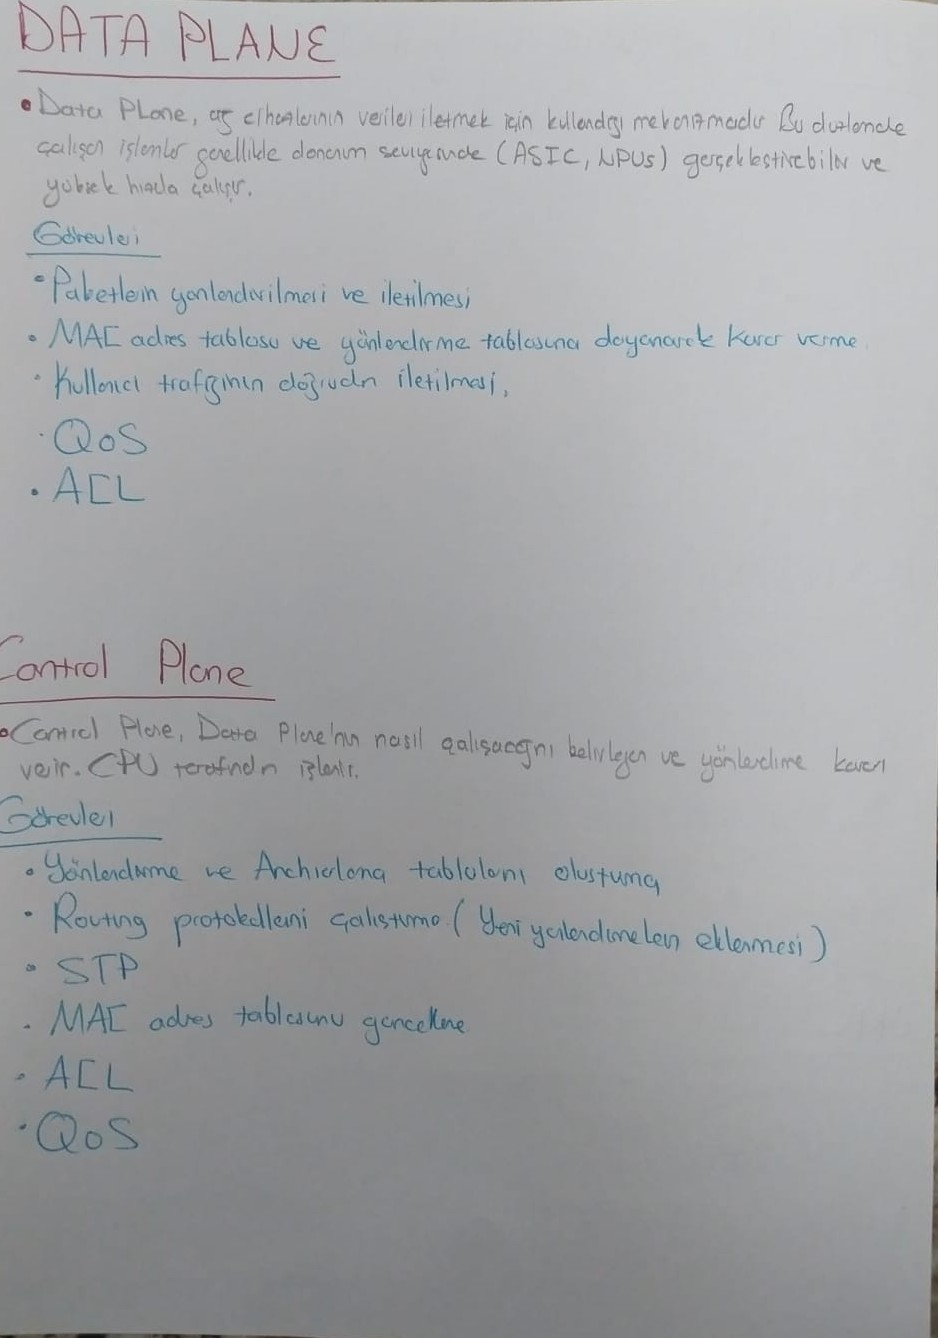 DATA PLANE
• Data Plane, ağ cihazlarının verileri iletmek için kullandığı mekanizmadır Bu düzlemde
çalışan işlemler genellikle donanım seviyesinde (ASIC, NPUs) gerçekleştirebilir ve
yüksek hızda çalışır.
Görevleri
• Paketlerin yönlendirilmesi ve iletilmesi
• MAC adres tablosu ve yönlendirme tablosuna dayanarak karar verme.
• Kullanıcı trafiğinin doğrudn iletilmesi.
• QoS
• ACL
Control Plane
• Control Plane, Data Plane'nın nasıl çalışacağnı belirleyen ve yönlendirme kararı
verir. CPU tarafındn işlenir.
Görevleri
• Yönlendirme ve tablolarını oluşturma
• Routing protokollerini çalıştırma. (Yeni yönlendirmelerin eklenmesi)
• STP
• MAC adres tablosunu güncelleme
• ACL
• QoS